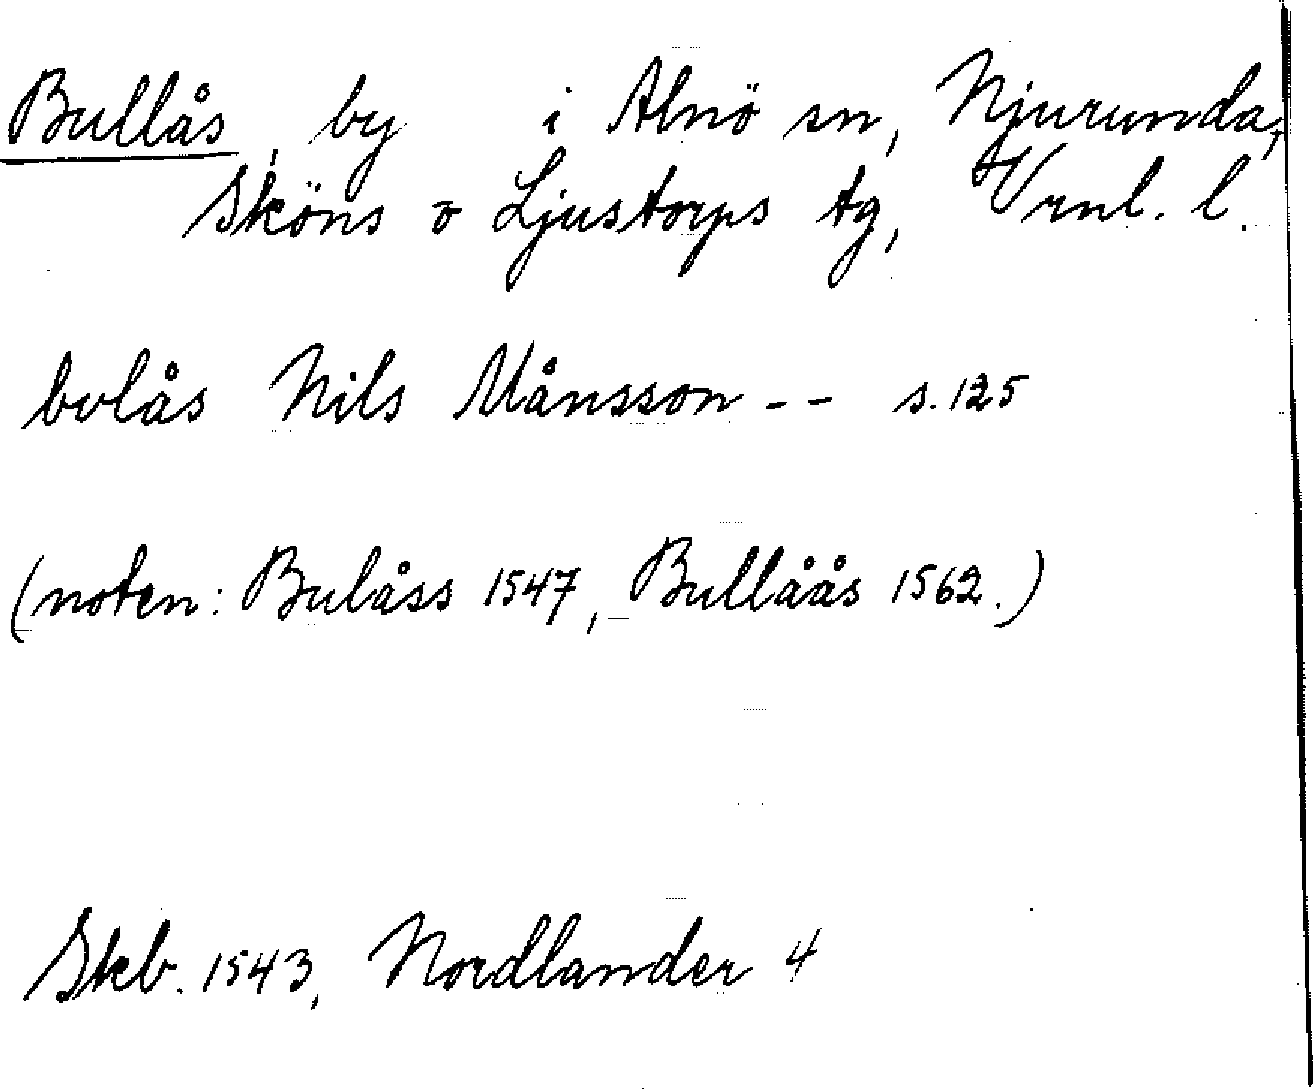 Bullås, by i Alnö sn, Njurunda,
Sköns o Ljustorps tg, Vrnl. l.
bolås Nils Månsson -- s. 125
(noten: Bulåss 1547, Bullåås 1562.)
Skb. 1543, Nordlander 4